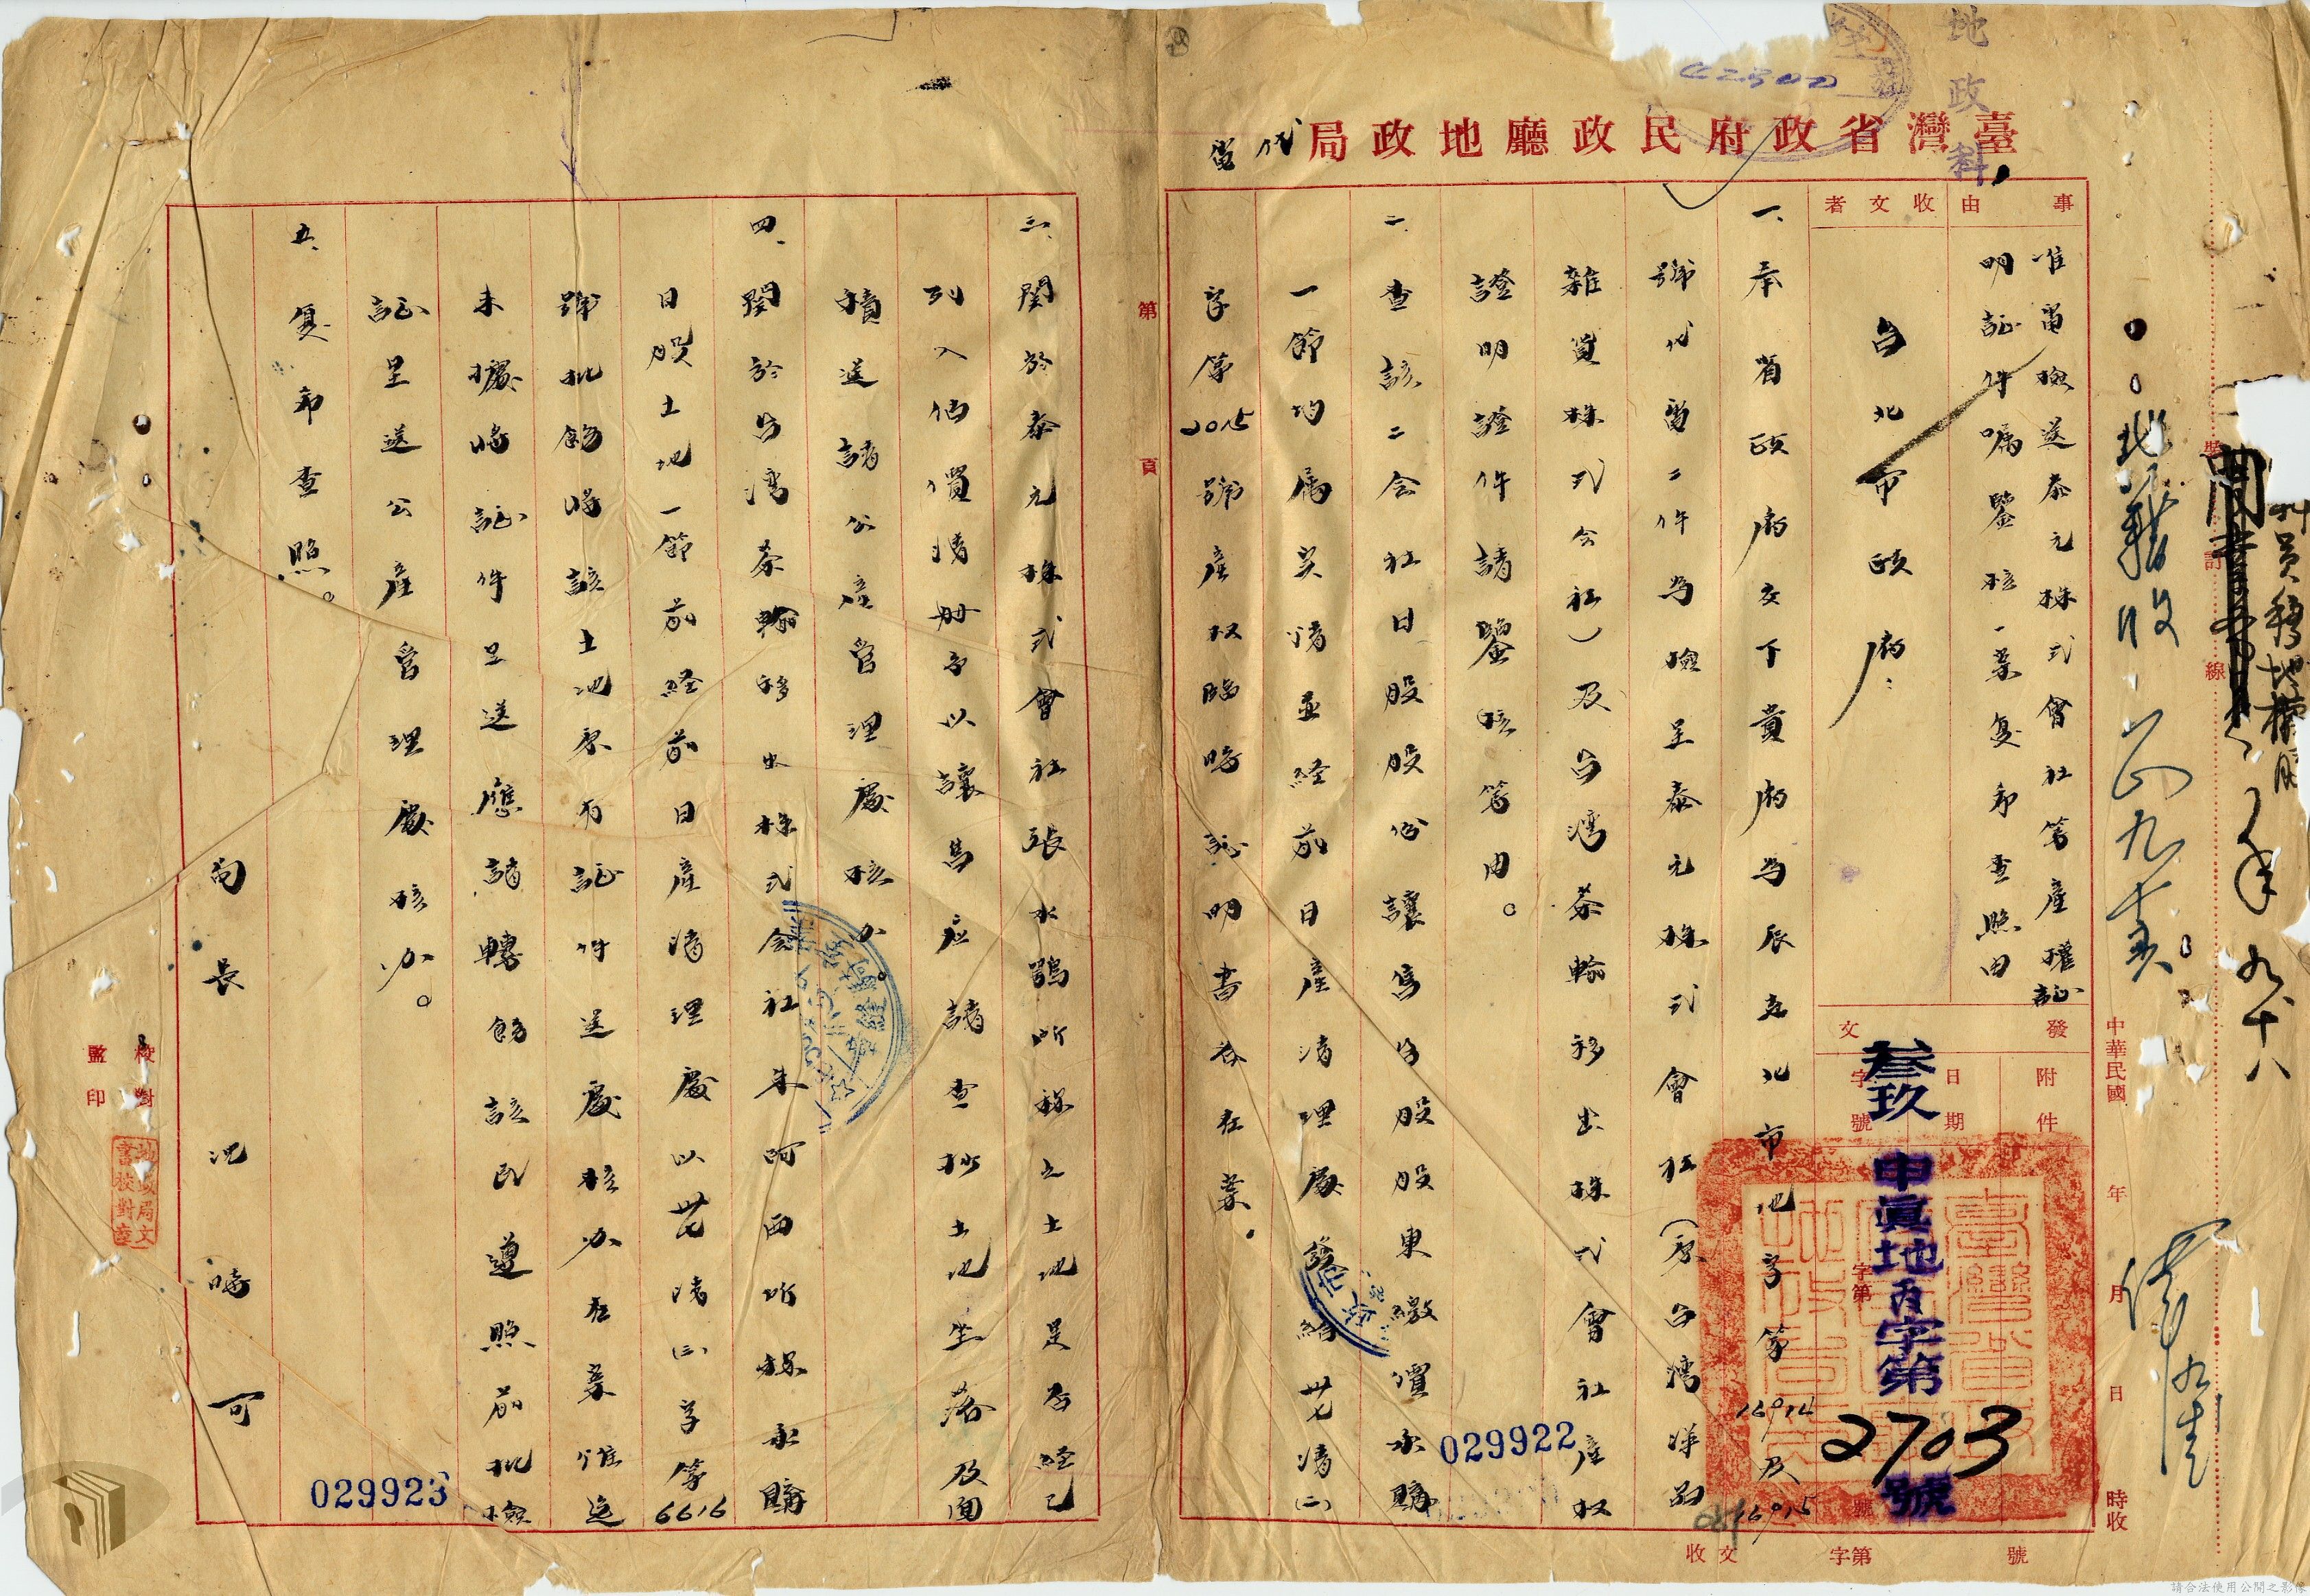 臺灣省政府民政廳地政局
代電
地政科
事由
准電檢送泰元株式會社等產權証
明証件囑鑒核一案复希查照由
收文者
台北市政府：
發文
附件
日期
字號
叁玖申眞地丙字第2703號
一、奉省政府交下貴府為辰元北市地字第16914及16915
號代電二件為檢呈泰元株式會社（原台灣洋品
雜貨株式会社）及台灣茶輸移出株式會社產权
證明證件請鑒核等由。
二、查該二会社日股股份讓售台股股東繳價承購
一節均属实情並経前日產清理處發給卅七清(二)
字第2015號產权臨時証明書各在案。
029922
第 頁
三、関於泰元株式會社張水鴞所称之土地是否経已
列入估價清册予以讓售應請查抄土地坐落及面
積送請公產管理處核办。
四、関於台湾茶輸移出株式会社朱阿西所称承購
日股土地一節前経前日產清理處以卅七清(三)字第6616
號批飭將該土地原有証件送處核办在案惟迄
未據將証件呈送應請轉飭該民遵照前批檢
証呈送公產管理處核办。
五、复希查照。
局長沈時可
029923
校對
監印
地政局文書校對章
裝訂線
中華民國 年 月 日 時收
收文 字第 號
請合法使用公開之影像